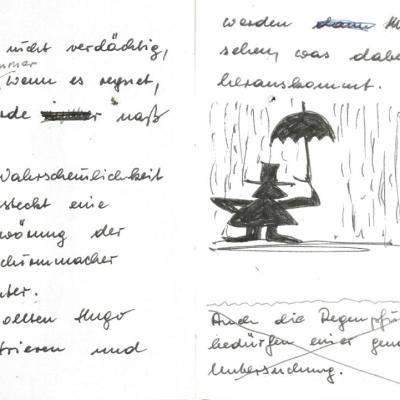 nicht verdächtig,
mmer
wenn es regnet,
rde naß
Wahrscheinlichkeit
steckt eine
wörung der
chirmmacher
nter.
ollten Hugo
trieren und
werden dann
sehen, was dabe
herauskommt.
Auch die Regenpfü
bedürfen einer gena
Untersuchung.